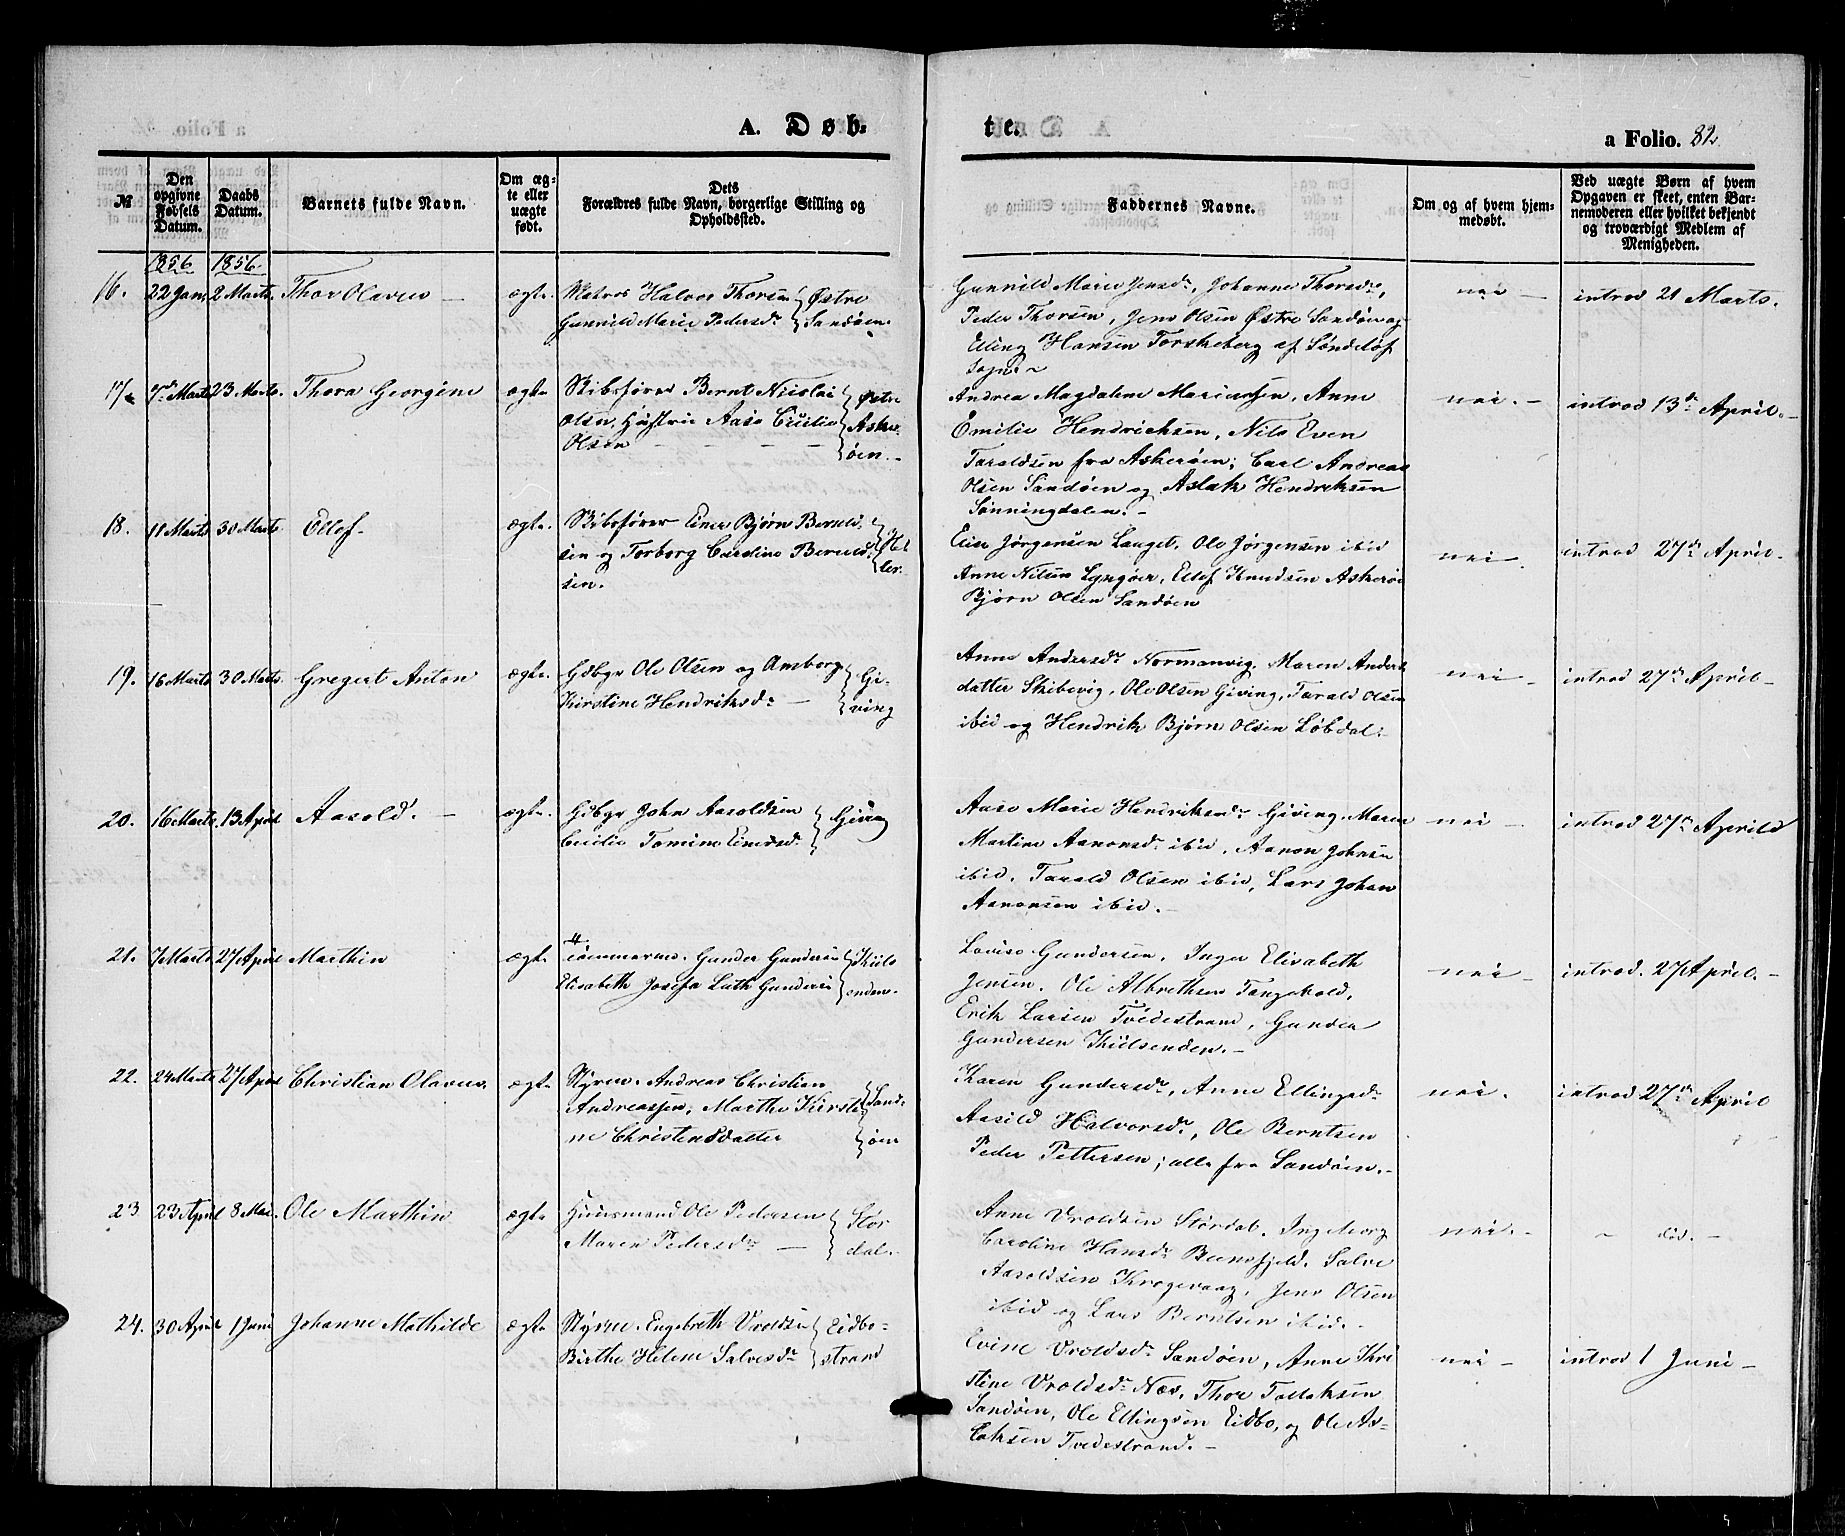 A. Døb-
te.
a Folio. 82.
№
Den opgivne Fødsels Datum.
Daabs Datum.
Barnets fulde Navn.
Om ægte eller uægte født.
Dets Forældres fulde Navn, borgerlige Stilling og Opholdssted.
Faddernes Navne.
Om og af hvem hjemmedøbt.
Ved uægte Børn af hvem Opgaven er skeet, enten Barnemoderen eller hvilket bekjendt og troværdigt Medlem af Menigheden.
1856 1856.
16. 22 Jan. 2 Marts. Thor Olaves — ægte. Matros Halvor Thorsen Østre
Gunnild Marie Pedersdr Sandøen.
Gunnild Marie Jensdr, Johanne Thorsdr,
Peder Thorsen, Jens Olsen Østre Sandøen og
Elling Hansen Torskeberg af Søndeløf
Sogn.
nei — introd 21 Marts.
17. 7de Marts 23 Marts. Thora Georgine ægte Skibsfører Bernt Nicolai Østre
Olsen, Hustrue Aase Cecilie Asker-
Olsen — øen. —
Andrea Magdalene Mariussen, Anne
Emilie Hendrichsen, Nils Even
Taraldsen fra Askerøen; Carl Andreas
Olsen Sandøen og Aslak Hendriksen
Sønningdalen. —
nei. — introd 13de April. —
18. 11 Marts 30 Marts. Ellef. ægte. Skibsfører Einer Bjørn Beruld-
sen og Torborg Caroline Beruld-
sen.
Jørgensen Lauget, Ole Jørgensen ibid
Anne Nilsen Lyngøer, Ellef Knudsen Askerøe
Bjørn Olsen Sandøen
nei — introd 27de April —
19. 16 Marts 30 Marts. Gregert Anton ægte. Gdbgr Ole Olsen og Amborg Gi-
Kirstine Hendriksdr — ving
Anne Andersdr Normanvig, Maren Anders
datter Skibevig, Ole Olsen Giving, Tarald Olsen
ibid og Hendrik Bjørn Olsen Løbdal. —
nei — introd 27de April —
20. 16 Marts. 13 April Aasold. — ægte. Gdbgr John Aasoldsen Giving
Cecilie Tomine Einersdr
Aase Marie Hendriksdr Giving, Maren
Martine Aanonsdr ibid, Aanon Johnsen
ibid, Tarald Olsen ibid, Lars Johan
Aanonsen ibid. —
nei — introd 27de Aprild
21. 7 Marts 27 April Marthin ægte Tømmermd. Gunder Gundersen Kiils-
Elisabeth Josefa Luth Gundersen enden.
Lovise Gundersen, Inger Elisabeth
Jensen, Ole Albrethsen Tangehold,
Erik Larsen Tvedestrand, Gunder
Gundersen Kiilsenden. —
nei — introd. 27 April. —
22. 24 Marts 27 April Christian Olaves. ægte Styrm. Andreas Christian
Andreassen, Marthe Kirsti- Sand-
ne Christensdatter øen
Karen Gundersdr, Anne Ellingsdr
Aasild Halvorsdr, Ole Berntsen
Peder Pettersen; alle fra Sandøen. —
nei. introd 27de April
23 23 April 8 Mai. Ole Marthin ægte Huusmand Ole Pedersen Stør
Maren Pedersdr — dal.
Anne Vroldsen Størdal, Ingeborg
Caroline Hansdr Buensfjeld, Salve
Aasoldsen Kragevaag, Jens Olsen
ibid og Lars Berntsen ibid. —
nei. — død. —
24. 30 April 1 Juni Johanne Mathilde ægte Styrm. Engebreth Vroldsen Eidbo-
Birthe Helene Salvesdr strand
Evine Vroldsdr Sandøen, Anne Kri
stine Vroldsdr Næs, Thor Tallaksen
Sandøen, Ole Ellingsen Eidbo, og Ole As-
laksen Tvedestrand. —
nei — introd 1 Juni —